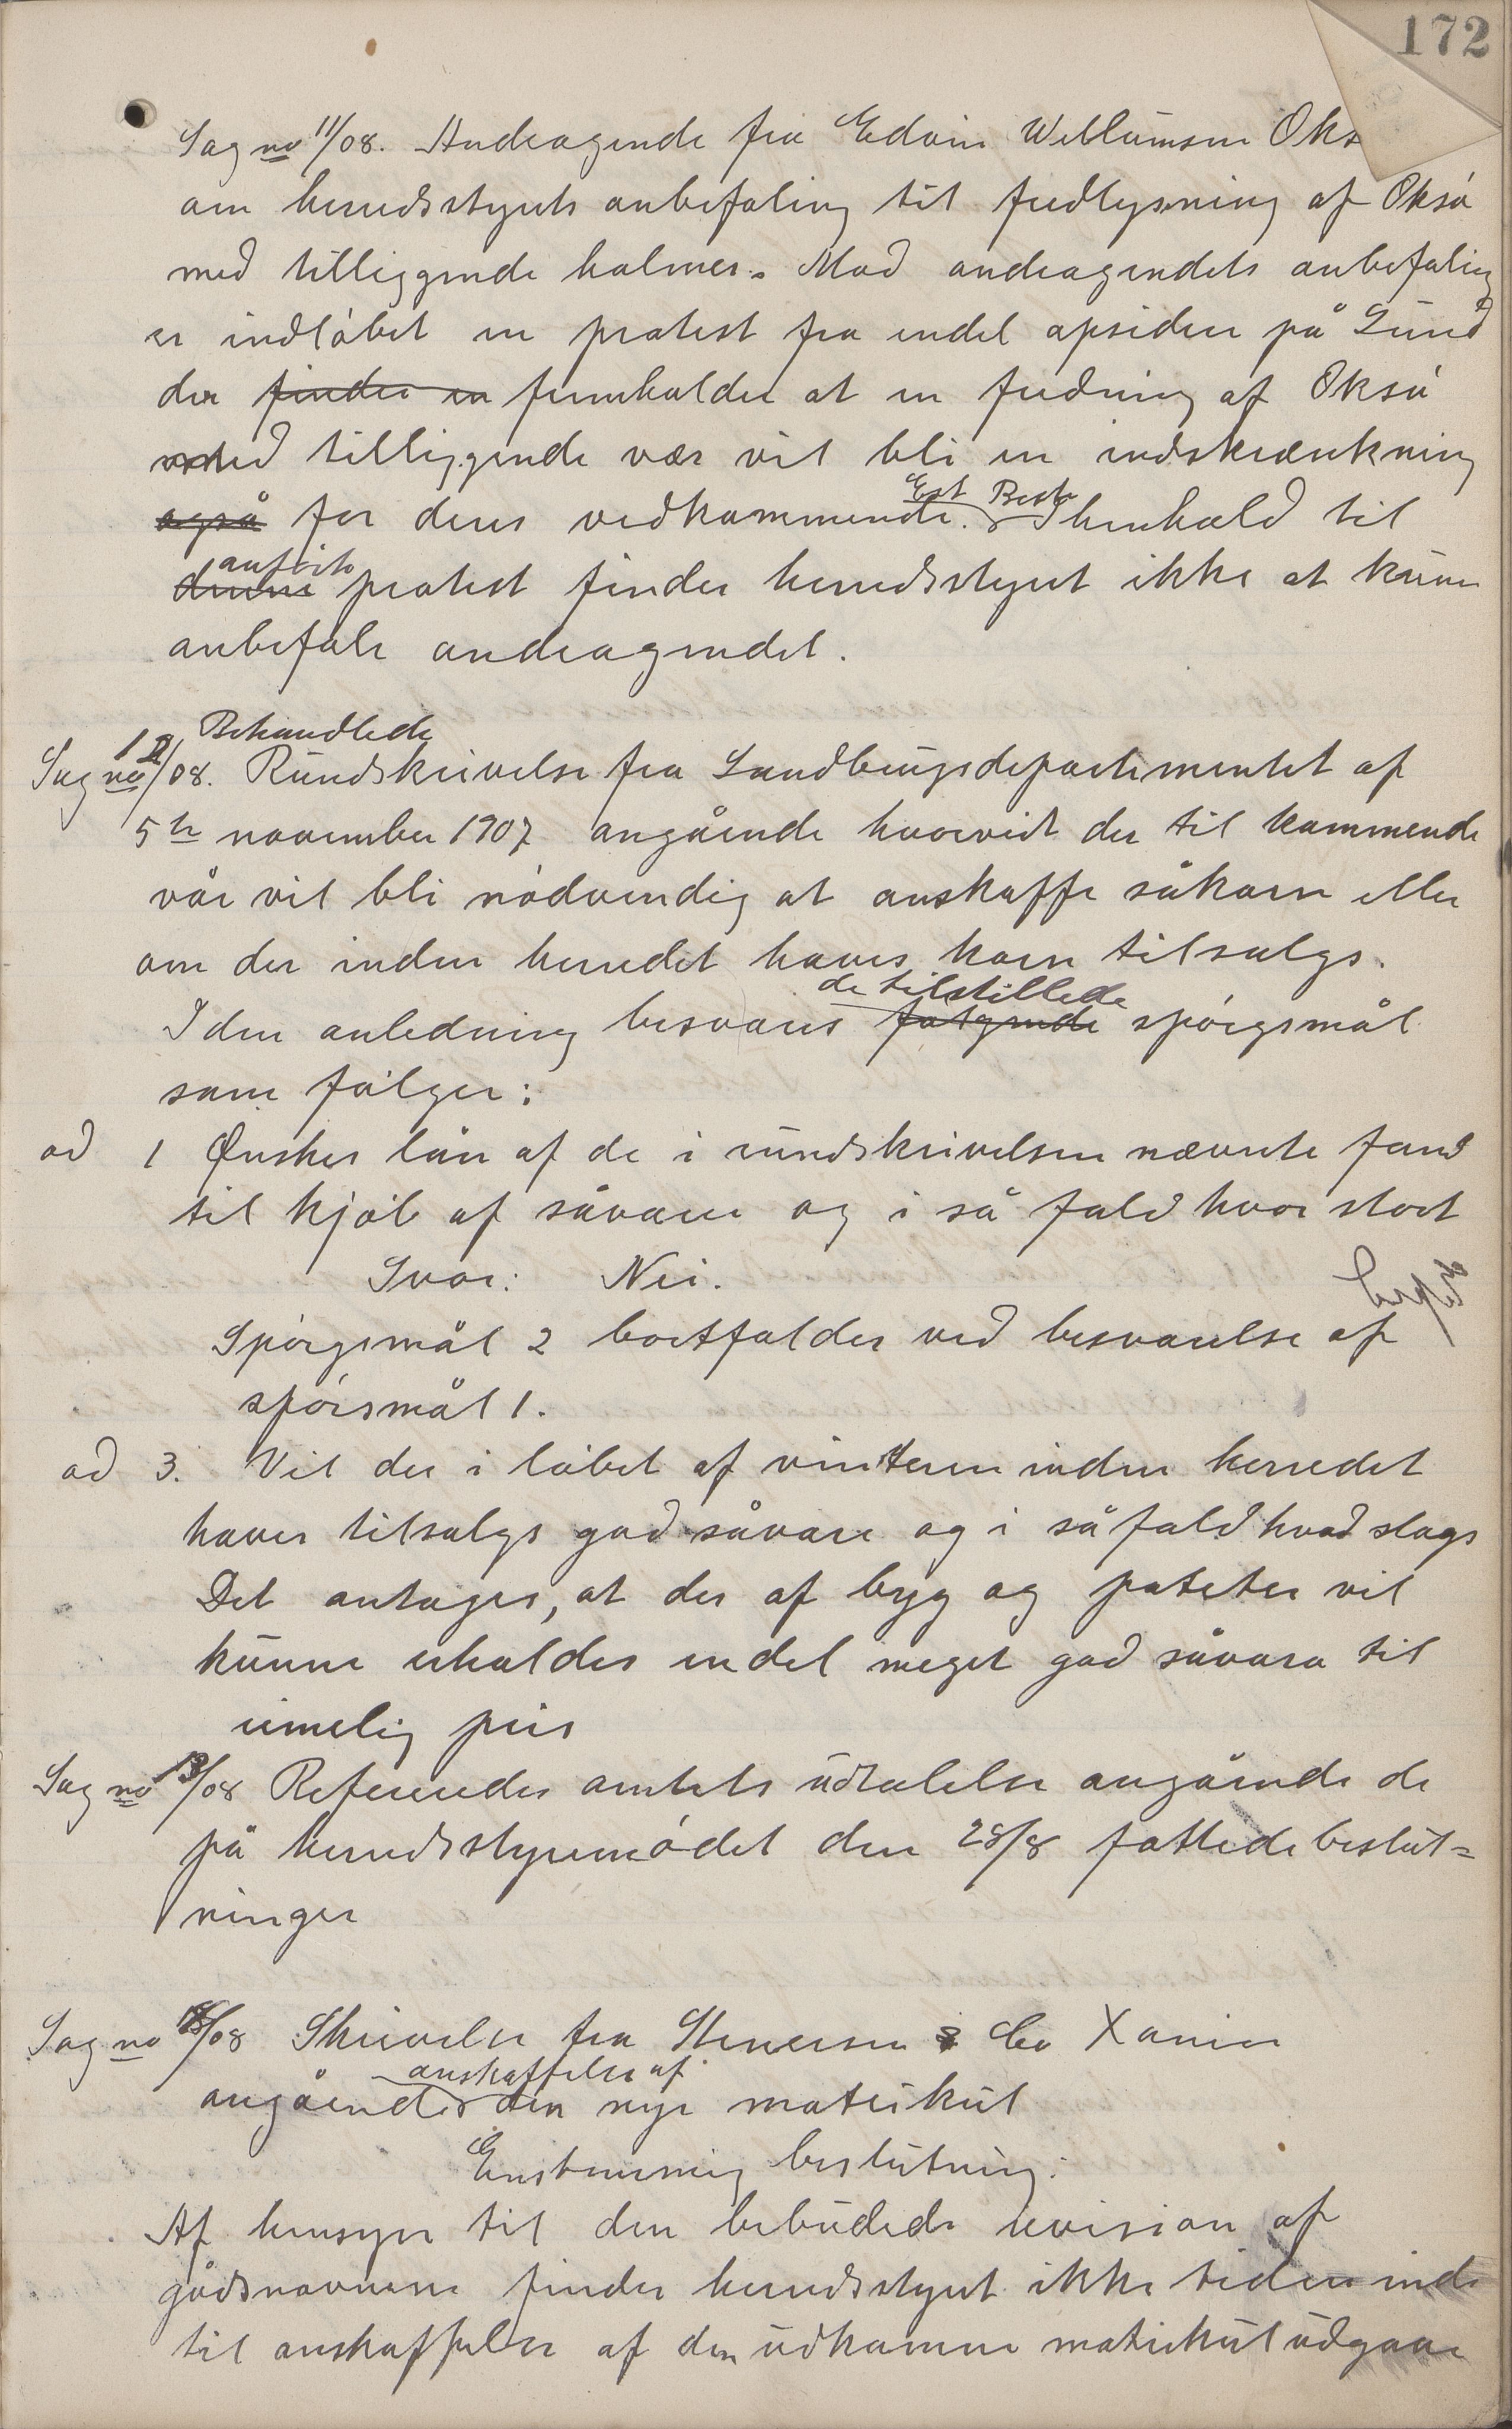 172
Sag no 11/08. Andragende fra Edvin Willumsen Oks
om herredsstyrets anbefaling til fredlysning af Oksø
med tilliggende holmer. Mod andragendets anbefaling
er indløbet en protest fra endel opsidere på Lund
der finder en fremholder at en fredning af Oksø
med tilliggende vær vil bli en indskrænkning
Enst. Besl.
også for deres vedkommende. I henhold til
anførte
denne protest finder herredsstyret ikke at kunne
anbefale andragendet.
Behandlede
Sag no 12/08. Rundskrivelse fra Landbrugsdepartementet af
5te november 1907 angående hvorvidt der til kommende
vår vil bli nødvendig at anskaffe såkorn eller
om der inden herredet haves korn tilsalgs.
de tilstillede
I den anledning besvares følgende spørgsmål
som følger:
ad 1 Ønskes lån af de i rundskrivelsen nævnte fond
til kjøb af såvarer og i så fald hvor stort
Svar: Nei.
Exp
Spørgsmål 2 bortfalder ved besvarelse af
spørsmål 1.
ad 3. Vil der i løbet af vinteren inden herredet
haves tilsalgs god såvare og i så fald hvad slags
Det antages, at der af byg og poteter vil
kunne erholdes endel meget god såvara til
rimelig pris
Sag no 13/08 Refereredes amtets udtalelse angående de
på herredsstyremødet den 28/8 fattede beslut=
ninger
Sag no /08 Skrivelse fra Stenersen & Co Xania
anskaffelse af
angående den nye matrikul
Enstemmig beslutning:
Af hensyn til den bebudede revision af
gårdsnavnene finder herredsstyret ikke tiden inde
til anskaffelse af den udkomne matrikuludgave